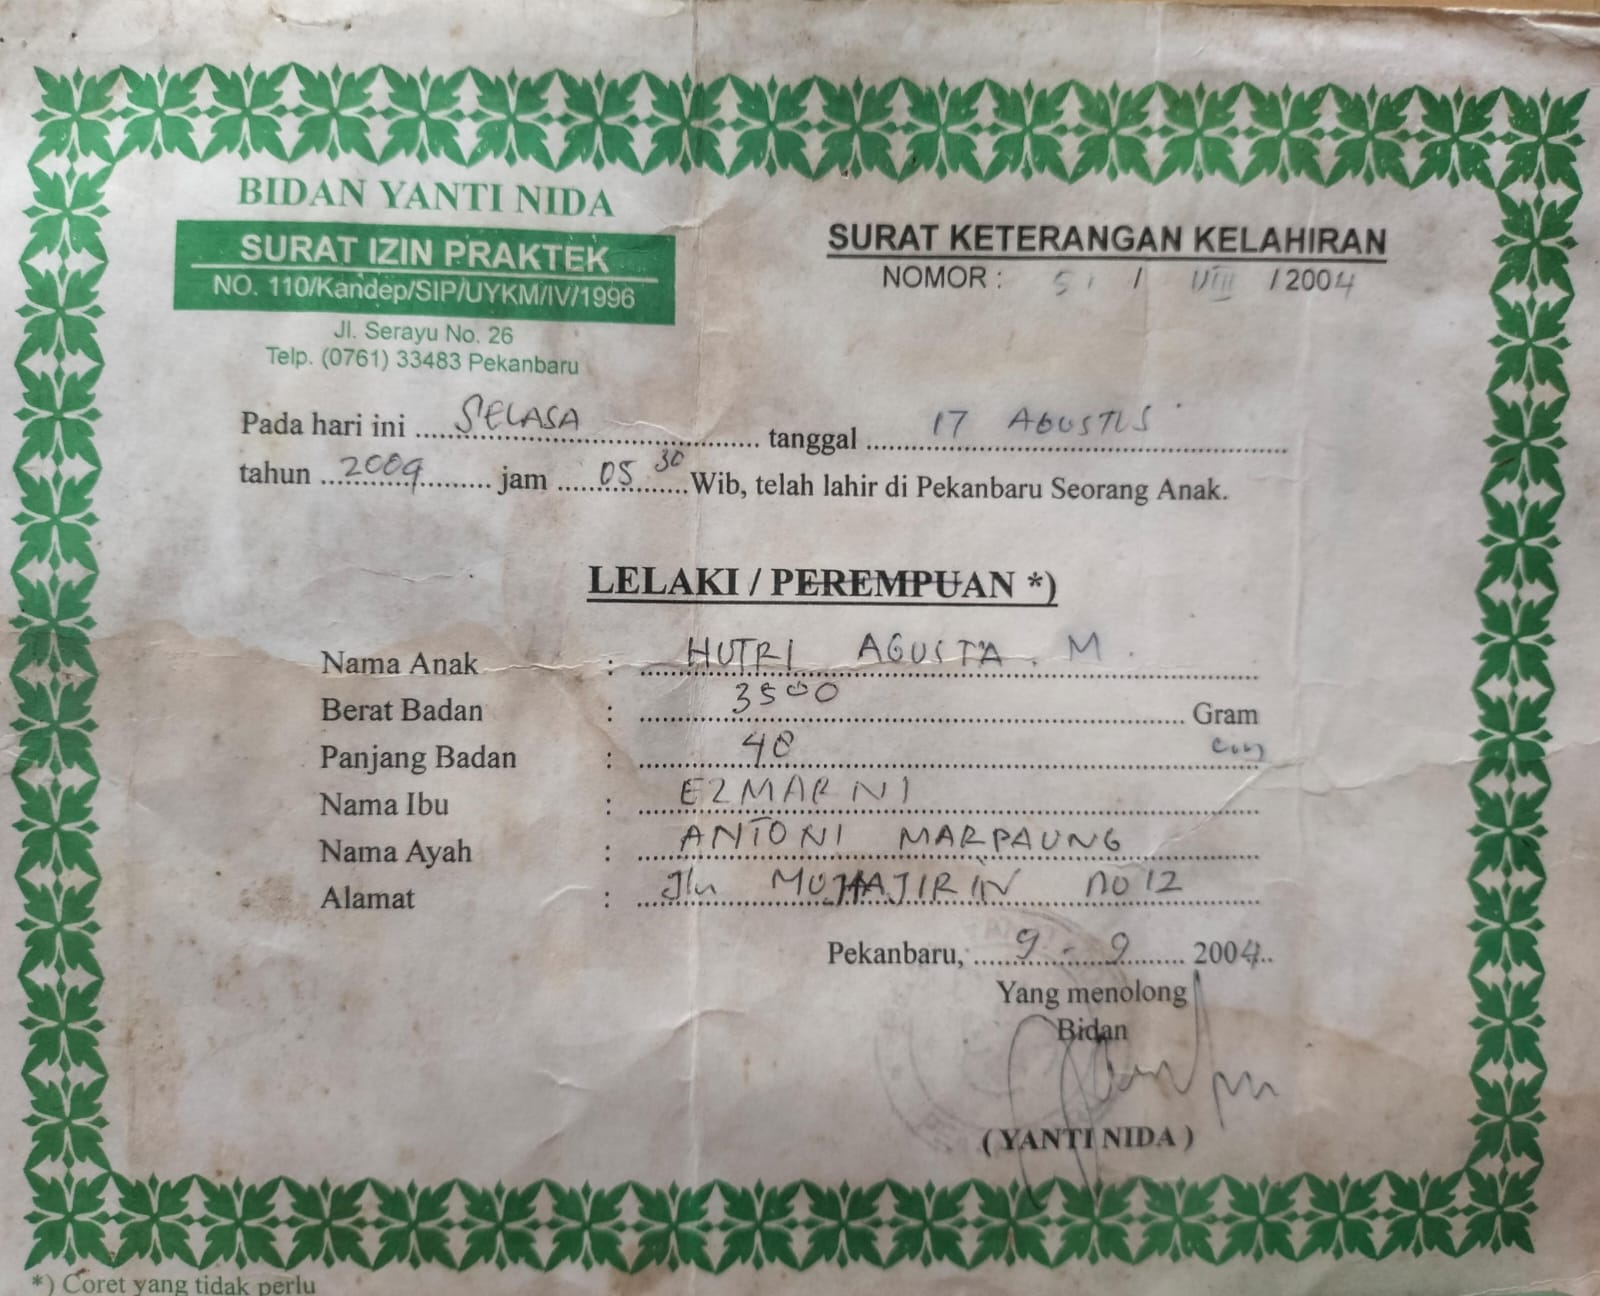 BIDAN YANTI NIDA
SURAT IZIN PRAKTEK
NO. 110/Kandep/SIP/UYKM/IV/1996
Jl. Serayu No. 26
Telp. (0761) 33483 Pekanbaru
SURAT KETERANGAN KELAHIRAN
NOMOR : / VIII / 2004
Pada hari ini SELASA tanggal 17 AGUSTUS
tahun 2004 jam 05 30 Wib, telah lahir di Pekanbaru Seorang Anak.
LELAKI / PEREMPUAN *)
Nama Anak : HUTRI AGUSTA. M.
Berat Badan : 3500 Gram
Panjang Badan : 48 cm
Nama Ibu : EZMARNI
Nama Ayah : ANTONI MARPAUNG
Alamat : Jln MUHAJIRIN no 12
Pekanbaru, 9 - 9 2004
Yang menolong
Bidan
( YANTI NIDA )
*) Coret yang tidak perlu